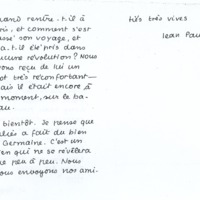 uand rentre-t-il à
ris, et comment s'est
ssé son voyage, et
a-t-il été pris dans
ucune révolution? Nous
vons reçu de lui un
ot très réconfortant—
ais il était encore à
moment, sur le ba-
au.
bientôt. Je pense que
a fait du bien
Germaine. C'est un
en qui ne se révélera
ue peu à peu. Nous
ous envoyons nos ami-
tiés très vives
Jean Pau